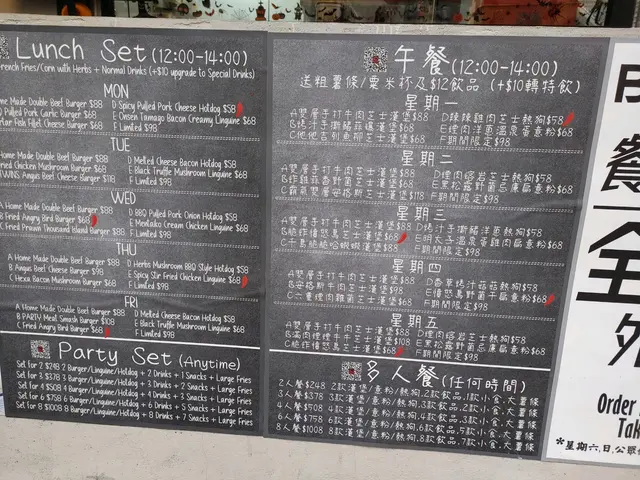 Lunch Set (12:00-14:00)
rench Fries/Corn with Herbs + Normal Drinks (+$10 upgrade to Special Drinks)
MON
Home Made Double Beef Burger $88
D Spicy Pulled Pork Cheese Hotdog $58
Pulled Pork Garlic Burger $68
E Onsen Tamago Bacon Creamy Linguine $68
Fish Fillet Cheese Burger $68
F Limited $98
TUE
Home Made Double Beef Burger $88
D Melted Cheese Bacon Hotdog $58
Fried Chicken Mushroom Burger $68
E Black Truffle Mushroom Linguine $68
TWINS Angus Beef Cheese Burger $118
F Limited $98
WED
A Home Made Double Beef Burger $88
D BBQ Pulled Pork Onion Hotdog $58
B Fried Angry Bird Burger $68
E Mentaiko Cream Chicken Linguine $68
C Fried Prawn Thousand Island Burger $88
F Limited $98
THU
A Home Made Double Beef Burger $88
D Herbs Mushroom BBQ Style Hotdog $58
B Angus Beef Cheese Burger $98
E Spicy Stir Fried Chicken Linguine $68
C Hexa Bacon Mushroom Burger $68
F Limited $98
FRI
A Home Made Double Beef Burger $88
D Melted Cheese Bacon Hotdog $58
B PARTY Meat Smash Burger $108
E Black Truffle Mushroom Linguine $68
C Fried Angry Bird Burger $68
F Limited $98
Party Set (Anytime)
Set for 2 $248 2 Burger/Linguine/Hotdog + 2 Drinks + 1 Snacks + Large Fries
Set for 3 $378 3 Burger/Linguine/Hotdog + 3 Drinks + 2 Snacks + Large Fries
Set for 4 $508 4 Burger/Linguine/Hotdog + 4 Drinks + 3 Snacks + Large Fries
Set for 6 $758 6 Burger/Linguine/Hotdog + 6 Drinks + 5 Snacks + Large Fries
Set for 8 $1008 8 Burger/Linguine/Hotdog + 8 Drinks + 7 Snacks + Large Fries
午餐(12:00-14:00)
送粗薯條/粟米杯及$12飲品 (+$10轉特飲)
星期一
A雙層手打牛肉芝士漢堡$88
D辣辣雞肉芝士熱狗$58
$68
E煙肉洋蔥溫泉蛋意粉$68
$68
F期間限定$98
星期二
A雙層手打牛肉芝士漢堡$88
D煙肉熔岩芝士熱狗$58
B炸雞扒香野菌芝士漢堡$68
E黑松露野菌忘廉扁意粉$68
C霸氣雙層安格斯芝士漢堡$118
F期間限定$98
星期三
A雙層手打牛肉芝士漢堡$88
D燒汁手撕豬洋蔥熱狗$58
B脆炸憤怒鳥芝士漢堡$68
E明太子溫泉蛋雞肉扁意粉$68
C千島脆脆哈蝦蝦漢堡$88
F期間限定$98
星期四
A雙層手打牛肉芝士漢堡$88
D香草燒汁菇菇熱狗$58
B安格斯牛肉芝士漢堡$98
E憤怒鳥野菌干扁意粉$68
C六重煙肉雜菌芝士漢堡$68
F期間限定$98
星期五
A雙層手打牛肉芝士漢堡$88
D煙肉熔岩芝士熱狗$58
$108
E黑松露野菌忘廉扁意粉$68
C脆炸憤怒鳥芝士漢堡$68
F期間限定$98
多人餐(任何時間)
2人餐$248 2款漢堡/意粉/熱狗,2款飲品,1款小食,大薯條
3人餐$378 3款漢堡/意粉/熱狗,3款飲品,2款小食,大薯條
4人餐$508 4款漢堡/意粉/熱狗,4款飲品,3款小食,大薯條
6人餐$758 6款漢堡/意粉/熱狗,6款飲品,5款小食,大薯條
8人餐$1008 8款漢堡/意粉/熱狗,8款飲品,7款小食,大薯條
餐
全
外
Order
Tak
*星期六,日,公眾